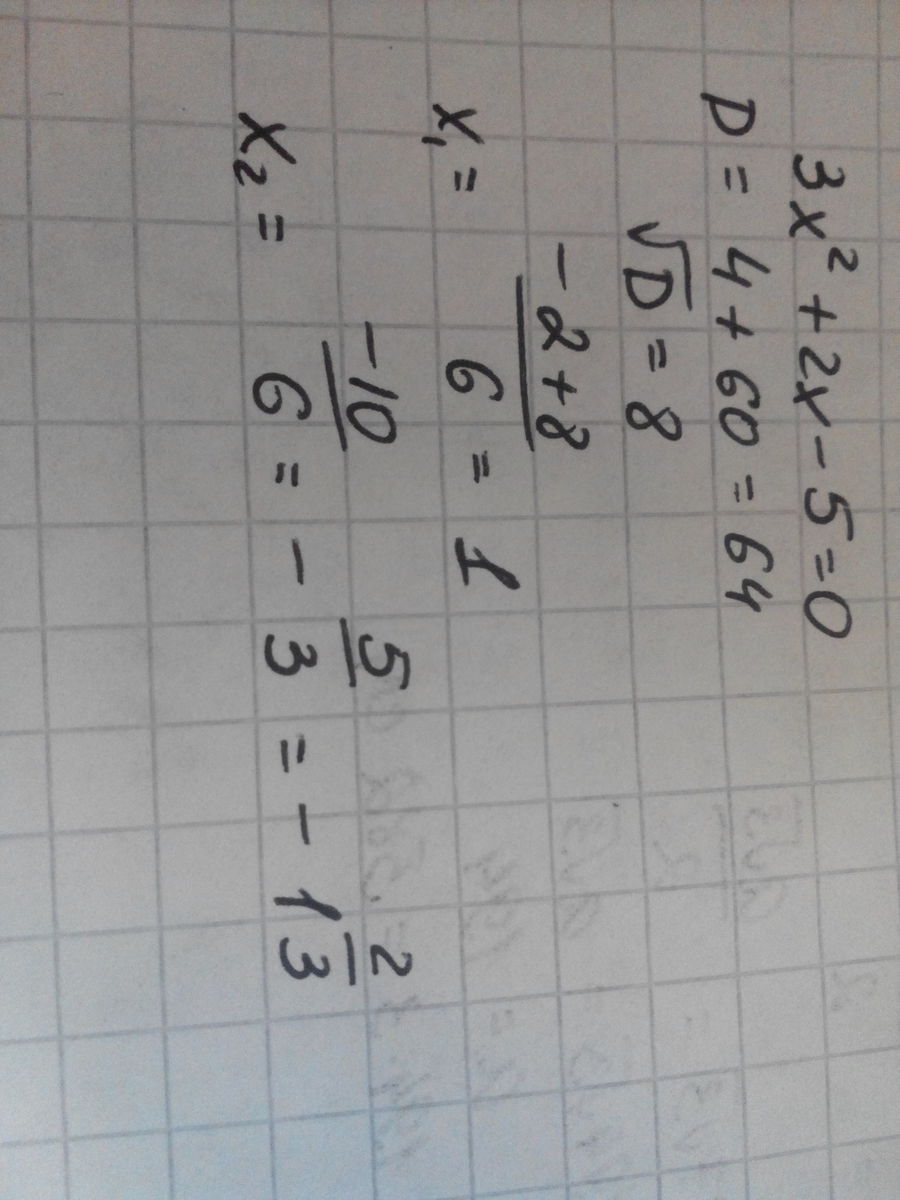 3x² + 2x - 5 = 0
D = 4 + 60 = 64
√D = 8
x₁ = (-2 + 8)/6 = 1
x₂ = -10/6 = - 5/3 = - 1 2/3